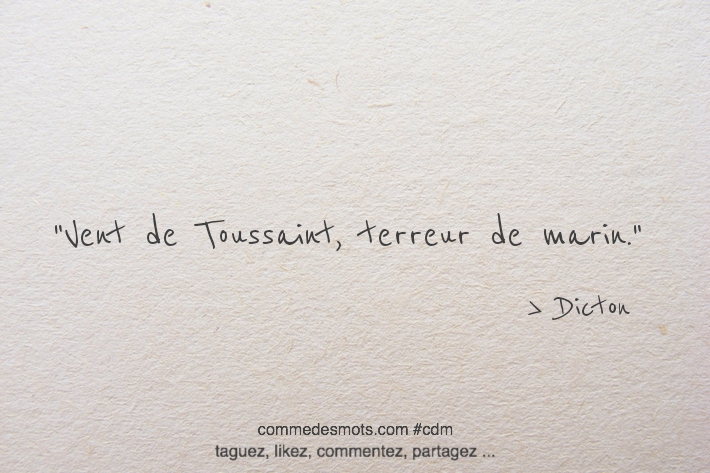 "Vent de Toussaint, terreur de marin."
> Dicton
commedesmots.com #cdm
taguez, likez, commentez, partagez ...